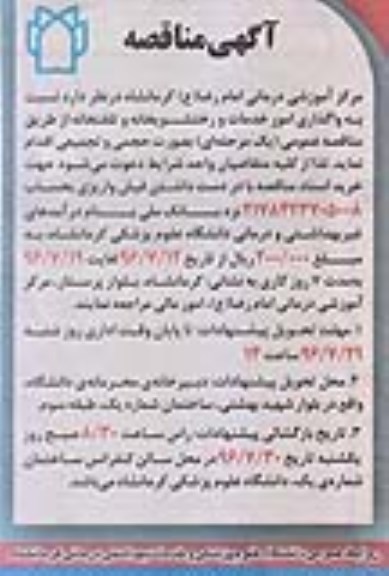 آگهی مناقصه
مرکز آموزشی درمانی امام رضا(ع) کرمانشاه در نظر دارد نسبت
به واگذاری امور خدمات و رختشویخانه و نقلیه از طریق
مناقصه عمومی (یک مرحله‌ای) بصورت حجمی و تجمیعی اقدام
نماید. لذا از کلیه متقاضیان واجد شرایط دعوت می‌شود جهت
خرید اسناد مناقصه با در دست داشتن فیش واریزی بحساب
نزد بانک ملی بنام درآمدهای
غیربهداشتی و درمانی دانشگاه علوم پزشکی کرمانشاه به
مبلغ ۲۰۰/۰۰۰ ریال از تاریخ ۹۶/۷/۱۲ لغایت ۹۶/۷/۱۹
بمدت ۷ روز کاری به نشانی: کرمانشاه، بلوار پرستار، مرکز
آموزشی درمانی امام رضا(ع)، امور مالی مراجعه نمایند.
۱. مهلت تحویل پیشنهادات: تا پایان وقت اداری روز شنبه
۹۶/۷/۲۹ ساعت ۱۴
۲. محل تحویل پیشنهادات: دبیرخانه‌ی محرمانه‌ی دانشگاه،
واقع در بلوار شهید بهشتی، ساختمان شماره یک، طبقه سوم.
۳. تاریخ بازگشائی پیشنهادات راس ساعت ۸/۳۰ صبح روز
یکشنبه تاریخ ۹۶/۷/۳۰ در محل سالن کنفرانس ساختمان
شماره‌ی یک، دانشگاه علوم پزشکی کرمانشاه می‌باشد.